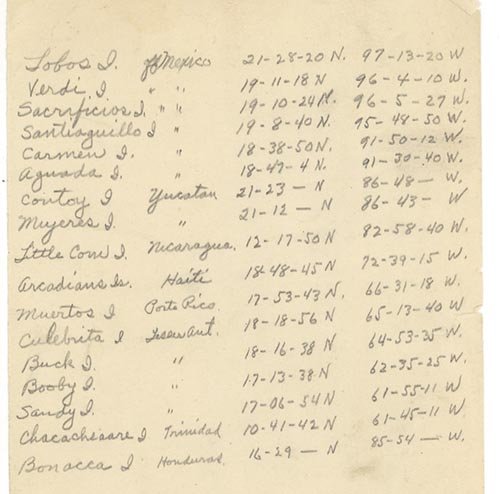 Lobos I. off Mexico 21-28-20 N. 97-13-20 W
Verdi I " " 19-11-18 N 96-4-10 W.
Sacrificios I. " " 19-10-24 N. 96-5-27 W.
Santiaguillo I " 19-8-40 N. 95-48-50 W.
Carmen I. " 18-38-50 N. 91-50-12 W.
Aguada I. " 18-47-4 N. 91-30-40 W.
Contoy I Yucatan 21-23 — N 86-48 — W.
Mujeres I. " 21-12 — N 86-43 - W
Little Corn I. Nicaragua. 12-17-50 N 82-58-40 W.
Arcadians Is. Haiti 18-48-45 N 72-39-15 W.
Muertos I Porto Rico. 17-53-43 N. 66-31-18 W
Culebrita I Lesser Ant. 18-18-56 N 65-13-40 W
Buck I. " 18-16-38 N 64-53-35 W.
Booby I. " 17-13-38 N 62-35-25 W.
Sandy I. " 17-06-54 N 61-55-11 W
Chacachesare I Trinidad 10-41-42 N 61-45-11 W
Bonacca I Honduras. 16-29 — N 85-54 — W.